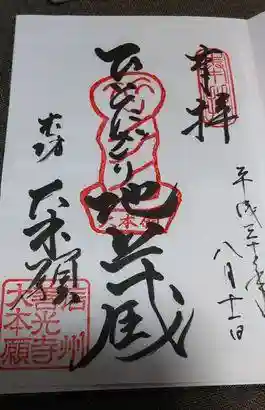 奉拝
平成三十年
八月十一日
ひとにぎり地蔵
本坊
大本願
信州
善光寺
大本願